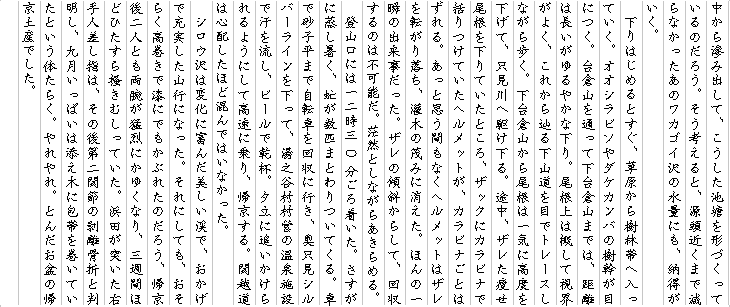 中から滲み出して、こうした池塘を形づくって
いるのだろう。そう考えると、源頭近くまで減
らなかったあのワカゴイ沢の水量にも、納得が
いく。
下りはじめるとすぐ、草原から樹林帯へ入っ
ていく。オオシラビソやダケカンバの樹幹が目
につく。台倉山を通って下台倉山までは、距離
は長いがゆるやかな下り。尾根上は概して視界
がよく、これから辿る下山道を目でトレースし
ながら歩く。下台倉山から尾根は一気に高度を
下げて、只見川へ駆け下る。途中、ザレた痩せ
尾根を下りていたところ、ザックにカラビナで
括りつけていたヘルメットが、カラビナごとは
ずれる。あっと思う間もなくヘルメットはザレ
を転がり落ち、灌木の茂みに消えた。ほんの一
瞬の出来事だった。ザレの傾斜からして、回収
するのは不可能だ。茫然としながらあきらめる。
登山口には一二時三〇分ごろ着いた。さすが
に蒸し暑く、虻が数匹まとわりついてくる。車
で砂子平まで自転車を回収に行き、奥只見シル
バーラインを下って、湯之谷村村営の温泉施設
で汗を流し、ビールで乾杯。夕立に追いかけら
れるようにして高速に乗り、帰京する。関越道
は心配したほど混んではいなかった。
シロウ沢は変化に富んだ美しい渓で、おかげ
で充実した山行になった。それにしても、おそ
らく高巻きで漆にでもかぶれたのだろう、帰京
後二人とも両腕が猛烈にかゆくなり、三週間ほ
どひたすら掻きむしっていた。浜田が突いた右
手人差し指は、その後第二関節の剥離骨折と判
明し、九月いっぱいは添え木に包帯を巻いてい
たという体たらく。やれやれ。とんだお盆の帰
京土産でした。